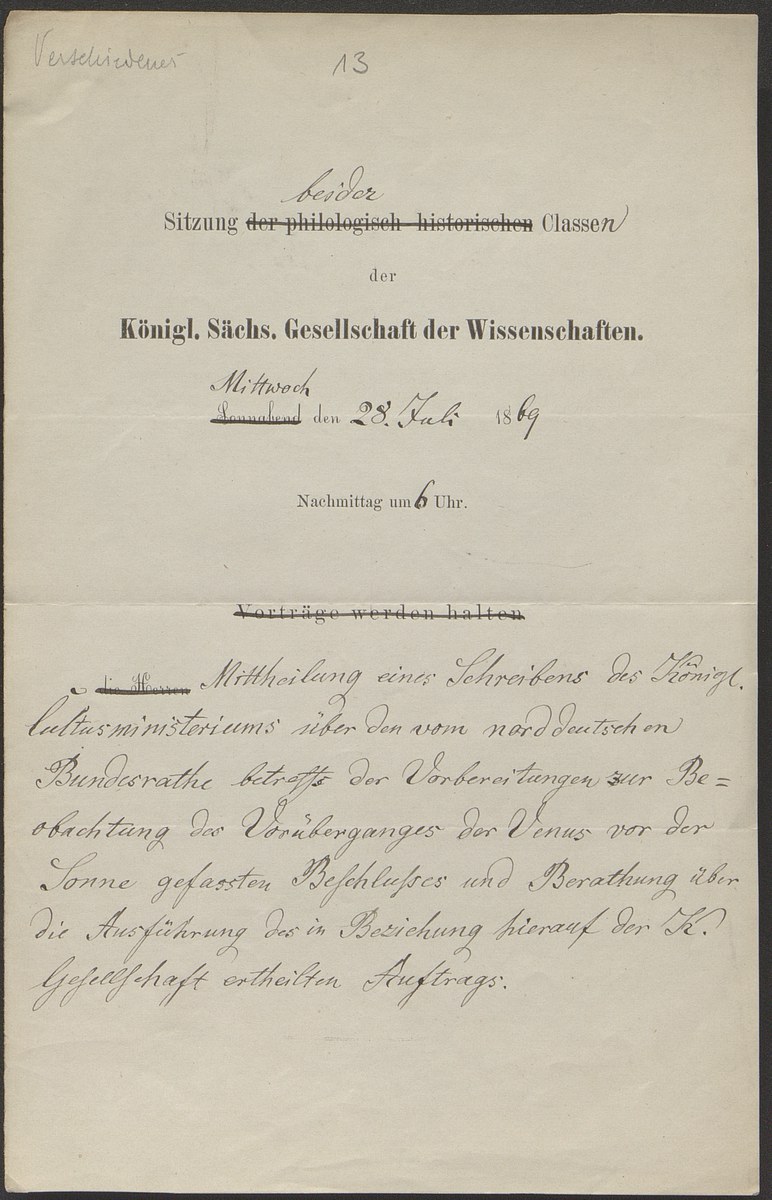 Verschiedenes
13
beider
Sitzung der philologisch-historischen Classen
der
Königl. Sächs. Gesellschaft der Wissenschaften.
Mittwoch
Sonnabend den 28. Juli 1869
Nachmittag um 6 Uhr.
Vorträge werden halten
die Herren Mittheilung eines Schreibens des Königl.
Cultusministeriums über den vom norddeutschen
Bundesrathe betreffs der Vorbereitungen zur Be=
obachtung des Vorüberganges der Venus vor der
Sonne gefassten Beschlusses und Berathung über
die Ausführung des in Beziehung hierauf der K.
Gesellschaft ertheilten Auftrags.